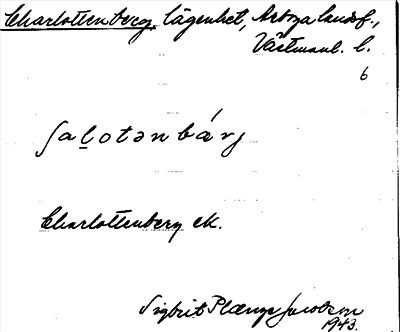 Charlottenberg, lägenhet, Arboga landsf.,
Västmanl. l.
6
ʃalotenbárj
Charlottenberg ek.
Sigbrit Plænge Jacobson
1943.